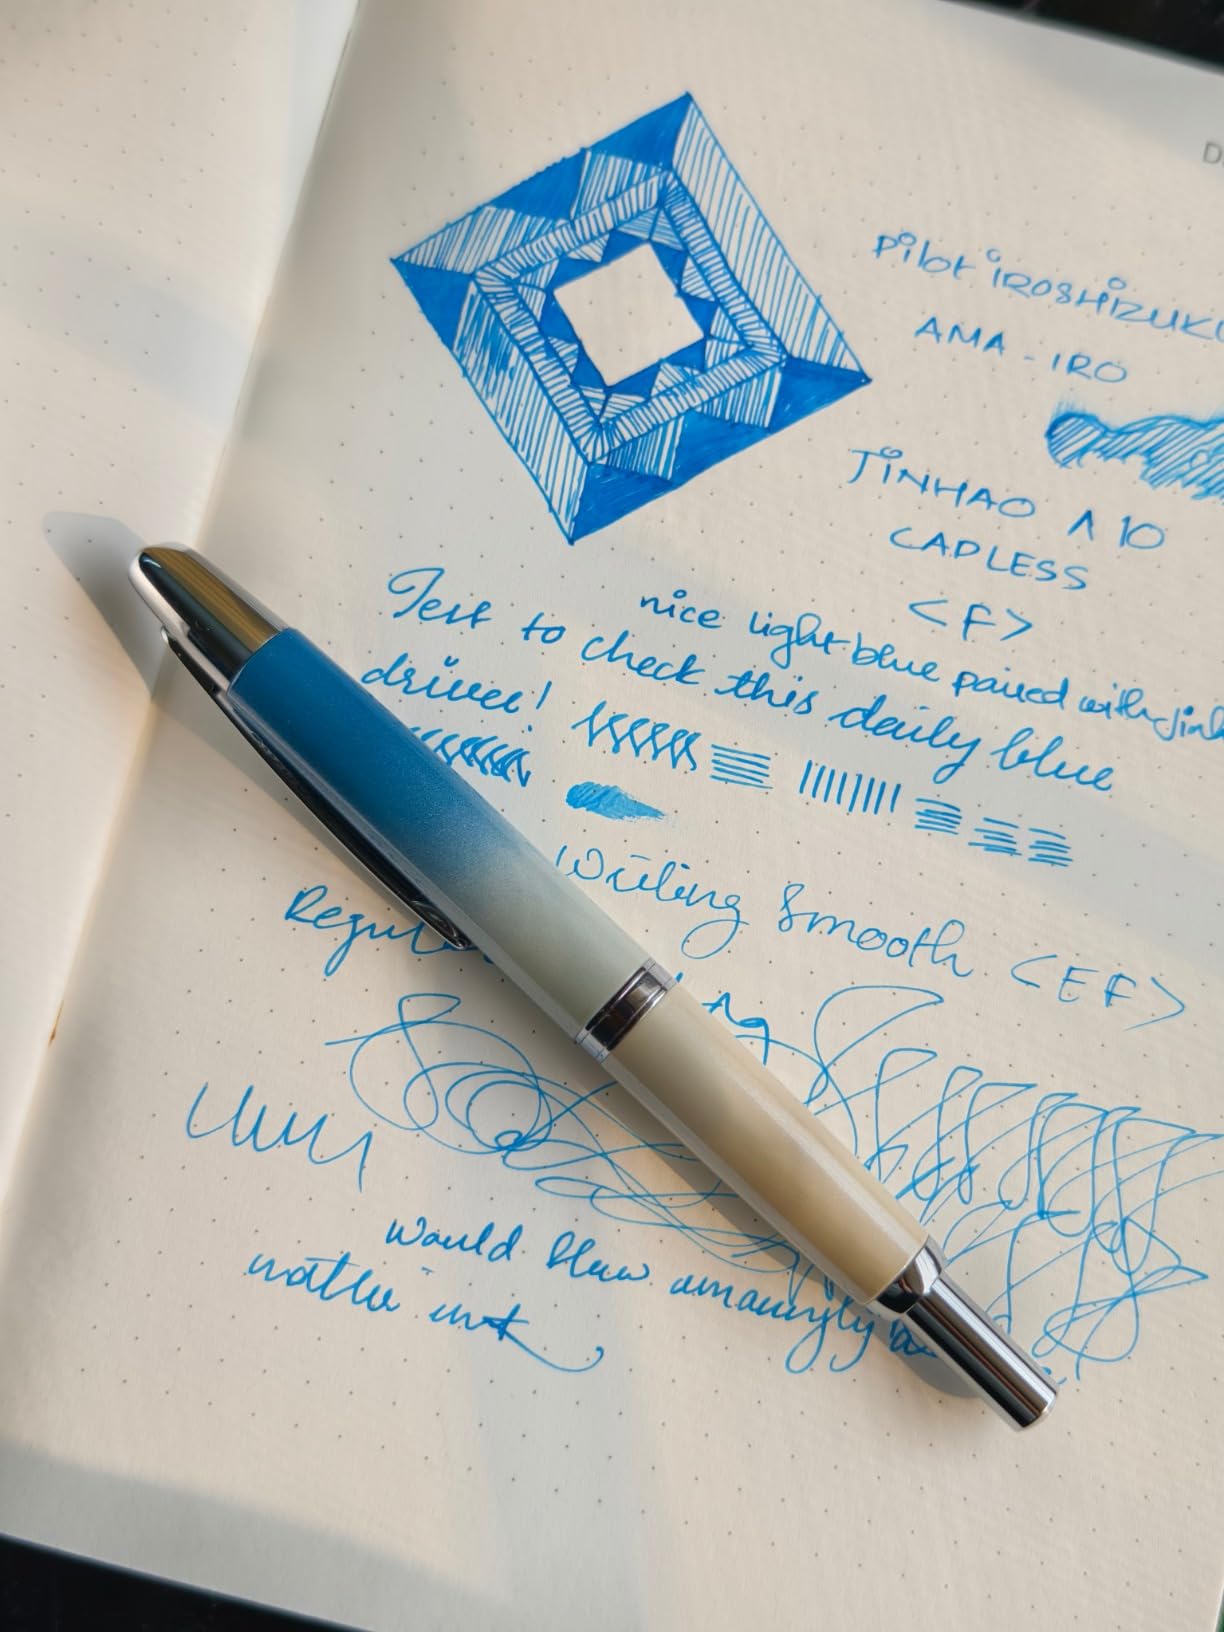 D
Pilot iROSHiZUKU
AMA - iRO
JiNHAO A 10
CAPLESS
<F>
nice light blue paired with Jinh
Test to check this daily blue
driver!
Writing Smooth <EF>
Regul
would blow amazingly